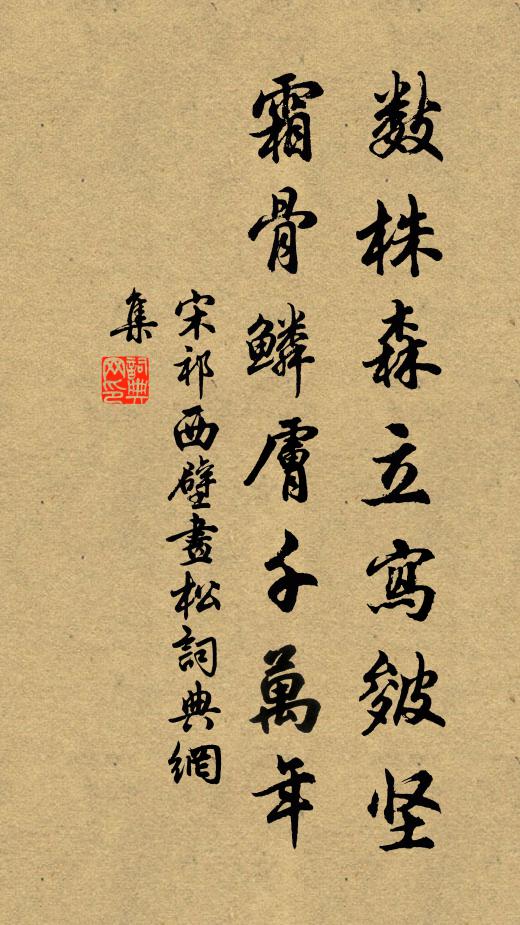 数株森立寫皴坚
霜骨鳞膚千萬年
宋祁西壁畫松詞典網
集
詞典
网印